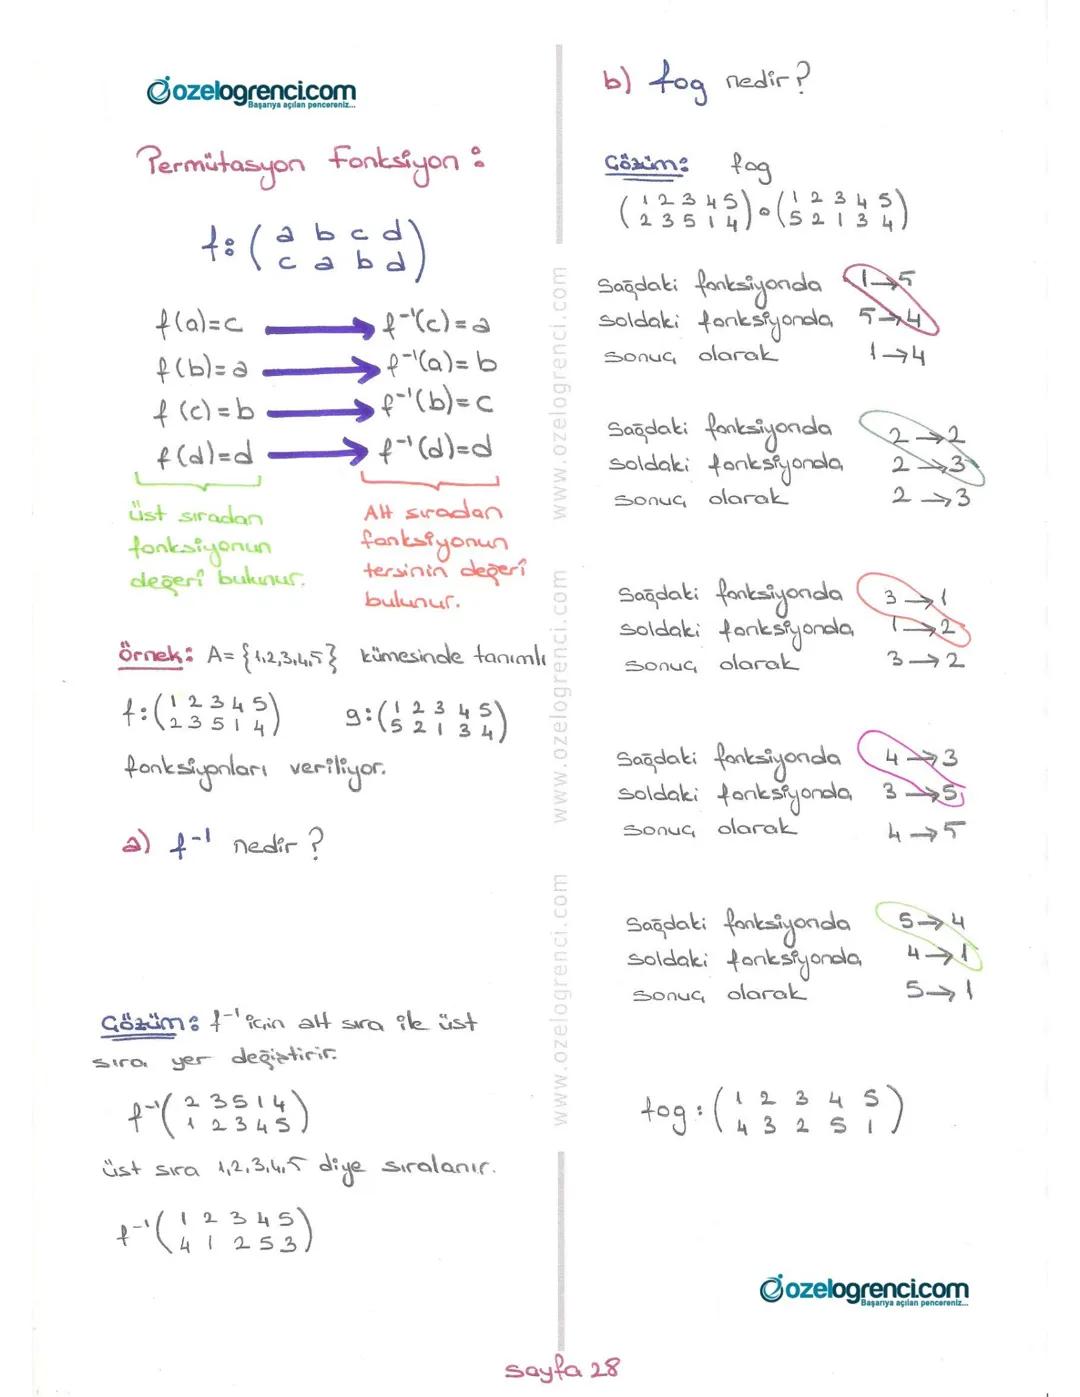 ozelogrenci.com
Başarıya açılan pencereniz...
Permütasyon Fonksiyon:
f: ( a b c d )
( c a b d )
f(a)=c → f⁻¹(c)=a
f(b)=a → f⁻¹(a)=b
f(c)=b → f⁻¹(b)=c
f(d)=d → f⁻¹(d)=d
üst sıradan
fonksiyonun
değeri bulunur.
Alt sıradan
fonksiyonun
tersinin değeri
bulunur.
Örnek: A={1,2,3,4,5} kümesinde tanımlı
f: ( 1 2 3 4 5 ) g: ( 1 2 3 4 5 )
( 2 3 5 1 4 ) ( 5 2 1 3 4 )
fonksiyonları veriliyor.
a) f⁻¹ nedir?
Çözüm: f⁻¹ için alt sıra ile üst
sıra yer değiştirir.
f⁻¹ ( 2 3 5 1 4 )
( 1 2 3 4 5 )
üst sıra 1,2,3,4,5 diye sıralanır.
f⁻¹ ( 1 2 3 4 5 )
( 4 1 2 5 3 )
www.ozelogrenci.com
www.ozelogrenci.com
www.ozelogrenci.com
b) fog nedir?
Çözüm: fog
( 1 2 3 4 5 ) o ( 1 2 3 4 5 )
( 2 3 5 1 4 ) ( 5 2 1 3 4 )
Sağdaki fonksiyonda 1→5
soldaki fonksiyonda 5→4
sonuç olarak 1→4
Sağdaki fonksiyonda 2→2
soldaki fonksiyonda 2→3
sonuç olarak 2→3
Sağdaki fonksiyonda 3→1
soldaki fonksiyonda 1→2
sonuç olarak 3→2
Sağdaki fonksiyonda 4→3
soldaki fonksiyonda 3→5
sonuç olarak 4→5
Sağdaki fonksiyonda 5→4
soldaki fonksiyonda 4→1
sonuç olarak 5→1
fog: ( 1 2 3 4 5 )
( 4 3 2 5 1 )
ozelogrenci.com
Başarıya açılan pencereniz...
sayfa 28